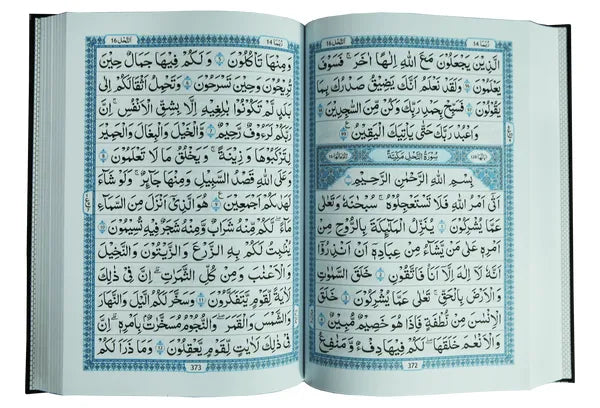 النَّحْل 16 رُبَمَا 14
الَّذِيْنَ يَجْعَلُوْنَ مَعَ اللّٰهِ اِلٰهًا اٰخَرَ ۚ فَسَوْفَ
يَعْلَمُوْنَ ۝ وَلَقَدْ نَعْلَمُ اَنَّكَ يَضِيْقُ صَدْرُكَ بِمَا
يَقُوْلُوْنَ ۝ فَسَبِّحْ بِحَمْدِ رَبِّكَ وَكُنْ مِّنَ السّٰجِدِيْنَ ۝
وَاعْبُدْ رَبَّكَ حَتّٰى يَاْتِيَكَ الْيَقِيْنُ ۝
سُوْرَةُ النَّحْلِ مَكِّيَّةٌ
بِسْمِ اللّٰهِ الرَّحْمٰنِ الرَّحِيْمِ
اَتٰۤى اَمْرُ اللّٰهِ فَلَا تَسْتَعْجِلُوْهُ ؕ سُبْحٰنَهٗ وَتَعٰلٰى
عَمَّا يُشْرِكُوْنَ ۝ يُنَزِّلُ الْمَلٰٓئِكَةَ بِالرُّوْحِ مِنْ
اَمْرِهٖ عَلٰى مَنْ يَّشَآءُ مِنْ عِبَادِهٖۤ اَنْ اَنْذِرُوْۤا
اَنَّهٗ لَاۤ اِلٰهَ اِلَّاۤ اَنَا فَاتَّقُوْنِ ۝ خَلَقَ السَّمٰوٰتِ
وَالْاَرْضَ بِالْحَقِّ ؕ تَعٰلٰى عَمَّا يُشْرِكُوْنَ ۝ خَلَقَ
الْاِنْسَانَ مِنْ نُّطْفَةٍ فَاِذَا هُوَ خَصِيْمٌ مُّبِيْنٌ ۝
وَالْاَنْعَامَ خَلَقَهَا ۚ لَكُمْ فِيْهَا دِفْءٌ وَّمَنَافِعُ
372
النَّحْل 16 رُبَمَا 14
وَمِنْهَا تَاْكُلُوْنَ ۝ وَلَكُمْ فِيْهَا جَمَالٌ حِيْنَ
تُرِيْحُوْنَ وَحِيْنَ تَسْرَحُوْنَ ۝ وَتَحْمِلُ اَثْقَالَكُمْ اِلٰى
بَلَدٍ لَّمْ تَكُوْنُوْا بٰلِغِيْهِ اِلَّا بِشِقِّ الْاَنْفُسِ ؕ اِنَّ
رَبَّكُمْ لَرَءُوْفٌ رَّحِيْمٌ ۝ وَّالْخَيْلَ وَالْبِغَالَ وَالْحَمِيْرَ
لِتَرْكَبُوْهَا وَزِيْنَةً ؕ وَيَخْلُقُ مَا لَا تَعْلَمُوْنَ ۝
وَعَلَى اللّٰهِ قَصْدُ السَّبِيْلِ وَمِنْهَا جَآئِرٌ ؕ وَلَوْ شَآءَ
لَهَدٰىكُمْ اَجْمَعِيْنَ ۝ هُوَ الَّذِيْۤ اَنْزَلَ مِنَ السَّمَآءِ
مَآءً لَّكُمْ مِّنْهُ شَرَابٌ وَّمِنْهُ شَجَرٌ فِيْهِ تُسِيْمُوْنَ ۝
يُنْۢبِتُ لَكُمْ بِهِ الزَّرْعَ وَالزَّيْتُوْنَ وَالنَّخِيْلَ
وَالْاَعْنَابَ وَمِنْ كُلِّ الثَّمَرٰتِ ؕ اِنَّ فِيْ ذٰلِكَ
لَاٰيَةً لِّقَوْمٍ يَّتَفَكَّرُوْنَ ۝ وَسَخَّرَ لَكُمُ الَّيْلَ وَالنَّهَارَ
وَالشَّمْسَ وَالْقَمَرَ ؕ وَالنُّجُوْمُ مُسَخَّرٰتٌۢ بِاَمْرِهٖ ؕ اِنَّ
فِيْ ذٰلِكَ لَاٰيٰتٍ لِّقَوْمٍ يَّعْقِلُوْنَ ۝ وَمَا ذَرَاَ لَكُمْ
373